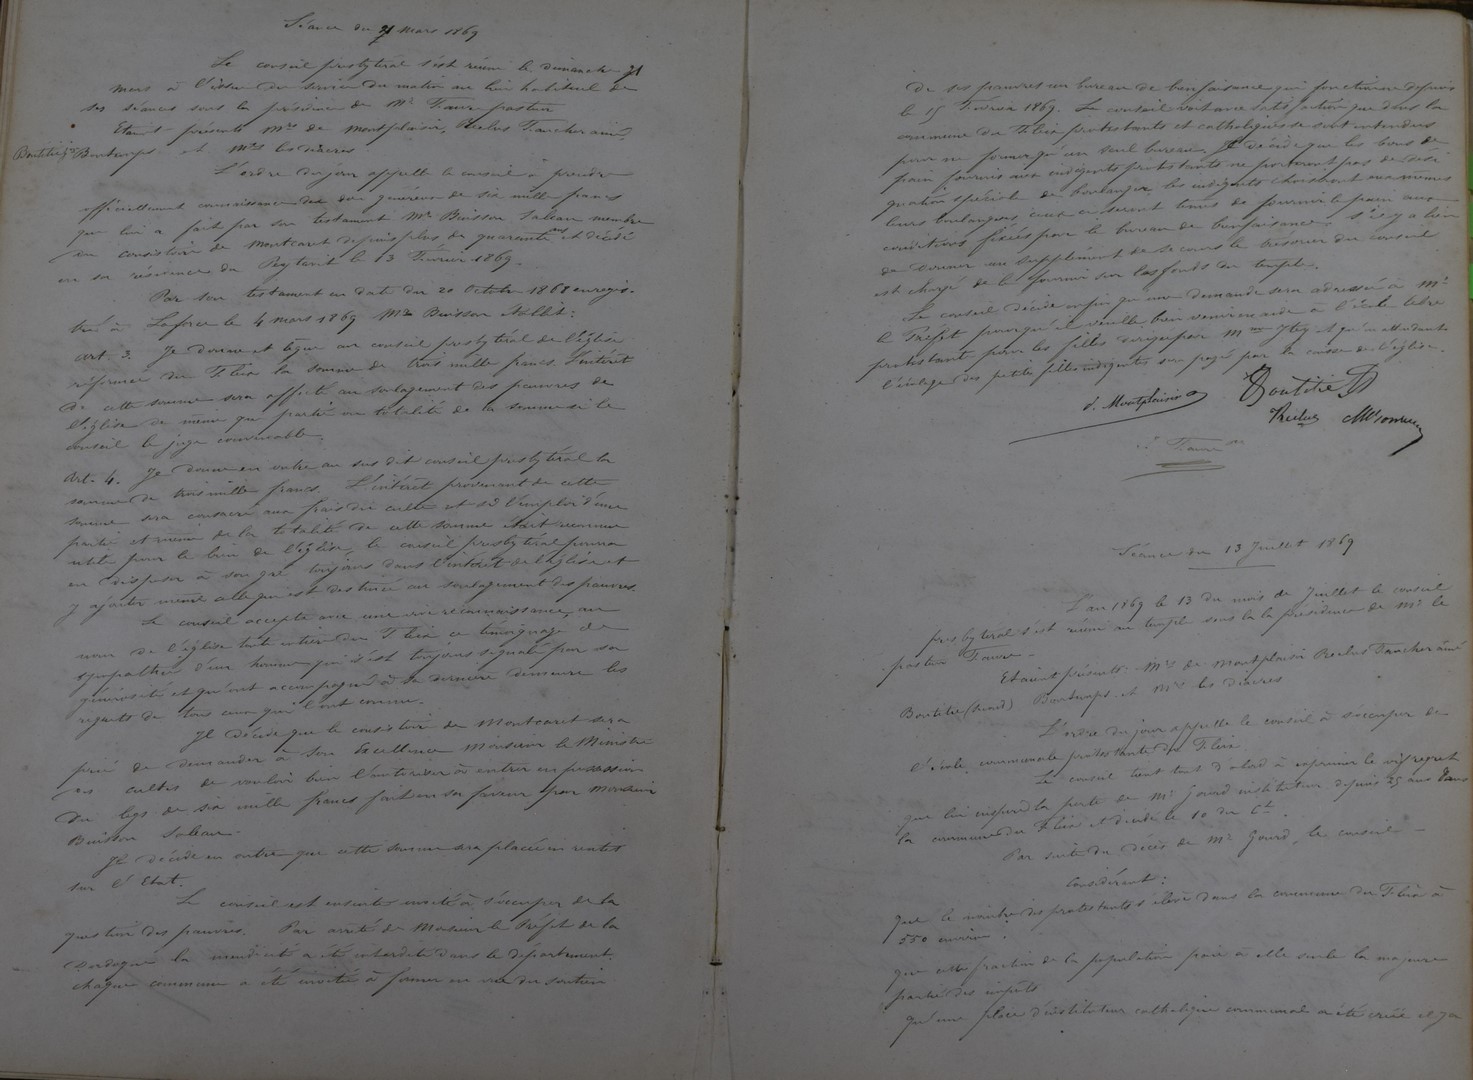 Séance du 21 mars 1869
Le conseil presbytéral s'est réuni le dimanche 21
mars à l'issue du service du matin au lieu habituel de
ses séances sous la présidence de Mr Faure pasteur
Etaient présents Mrs de Montplaisir, Reclus Faucher ainé,
Boutitié jne Bontemps et Mrs les diacres
L'ordre du jour appelle le conseil à prendre
officiellement connaissance du don généreux de six mille francs
que lui a fait par son testament Mr Buisson Saleau membre
du consistoire de Montcaret depuis plus de quarante ans et décédé
en sa résidence du Reytarit le 13 Février 1869.
Par son testament en date du 20 octobre 1868 enregis-
tré à Laforce le 4 mars 1869 Mr Buisson établit:
art. 3. Je donne et lègue au conseil presbytéral de l'église
réformée du Fleix la somme de trois mille francs. L'intérêt
de cette somme sera affecté au soulagement des pauvres de
l'église de même que partie ou totalité de la somme si le
conseil le juge convenable.
art. 4. Je donne en outre au sus dit conseil presbytéral la
somme de trois mille francs. L'intérêt provenant de cette
somme sera consacré aux frais du culte et si l'emploi d'une
partie et même de la totalité de cette somme était reconnue
utile pour le bien de l'église, le conseil presbytéral pourra
en disposer à son gré toujours dans l'intérêt de l'église et
y ajouter même celle qui est destinée au soulagement des pauvres.
Le conseil accepte avec une vive reconnaissance, au
nom de l'église toute entière du Fleix ce témoignage de
sympathie d'un homme qui s'est toujours signalé par sa
générosité et qu'ont accompagné à sa dernière demeure les
regrets de tous ceux qui l'ont connu.
Il décide que le consistoire de Montcaret sera
prié de demander à Son Excellence Monsieur le Ministre
des cultes de vouloir bien l'autoriser à entrer en possession
du legs de six mille francs fait en sa faveur par Monsieur
Buisson Saleau.
Il décide en outre que cette somme sera placée en rentes
sur l'Etat.
Le conseil est ensuite invité à s'occuper de la
question des pauvres. Par arrêté de Monsieur le Préfet de la
Dordogne la mendicité a été interdite dans le département,
chaque commune a été invitée à former en vue du soutien
de ses pauvres un bureau de bienfaisance qui fonctionne depuis
le 15 Février 1869. Le conseil voit avec satisfaction que dans la
commune du Fleix protestants et catholiques se sont entendus
pour ne former qu'un seul bureau, Il décide que les bons de
pain fournis aux indigents protestants ne porteront pas de dési
gnation spéciale de boulanger, les indigents choisiront eux mêmes
leurs boulangers ceux ci seront tenus de fournir le pain aux
conditions fixées par le bureau de bienfaisance. S'il y a lieu
de donner un supplément de secours le trésorier du conseil
est chargé de le fournir sur les fonds du temple.
Le conseil décide enfin qu'une demande sera adressée à Mr
le Préfet pour qu'il veuille bien venir en aide à l'école libre
protestante pour les filles dirigée par Mme et qu'en attendant
l'écolage des petites filles indigentes sera payé par la caisse de l'église.
d. Montplaisir Boutitié
Reclus
J Faure
Séance du 13 Juillet 1869
L'an 1869 le 13 du mois de Juillet le conseil
presbytéral s'est réuni au temple sous la la présidence de Mr le
pasteur Faure.
Etaient présents: Mrs de Montplaisir Reclus Faucher ainé
Boutitié Bontemps et Mrs les diacres
L'ordre du jour appelle le conseil à s'occuper de
l'école communale protestante du Fleix.
Le conseil tient tout d'abord à exprimer le vif regret
que lui inspire la perte de Mr Gourd instituteur depuis 25 ans dans
la commune du Fleix et décédé le 10 du Ct.
Par suite du décès de Mr Gourd, le conseil
Considérant:
que le nombre des protestants s'élève dans la commune du Fleix à
550 environ.
que cette fraction de la population paie à elle seule la majeure
partie des impôts
qu'une place d'instituteur catholique communal a été créée il y a